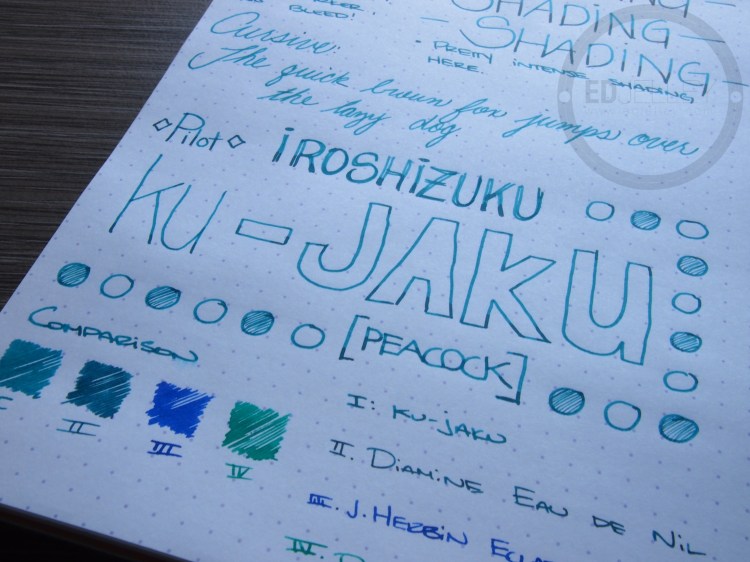 BLEED!
SHADING
SHADING
• PRETTY INTENSE SHADING
HERE.
Cursive:
The quick brown fox jumps over
the lazy dog
Pilot
IROSHIZUKU
KU-JAKU
[PEACOCK]
COMPARISON
II
III
IV
I: KU-JAKU
II. DIAMINE EAU DE NIL
III. J. HERBIN
IV.
ED